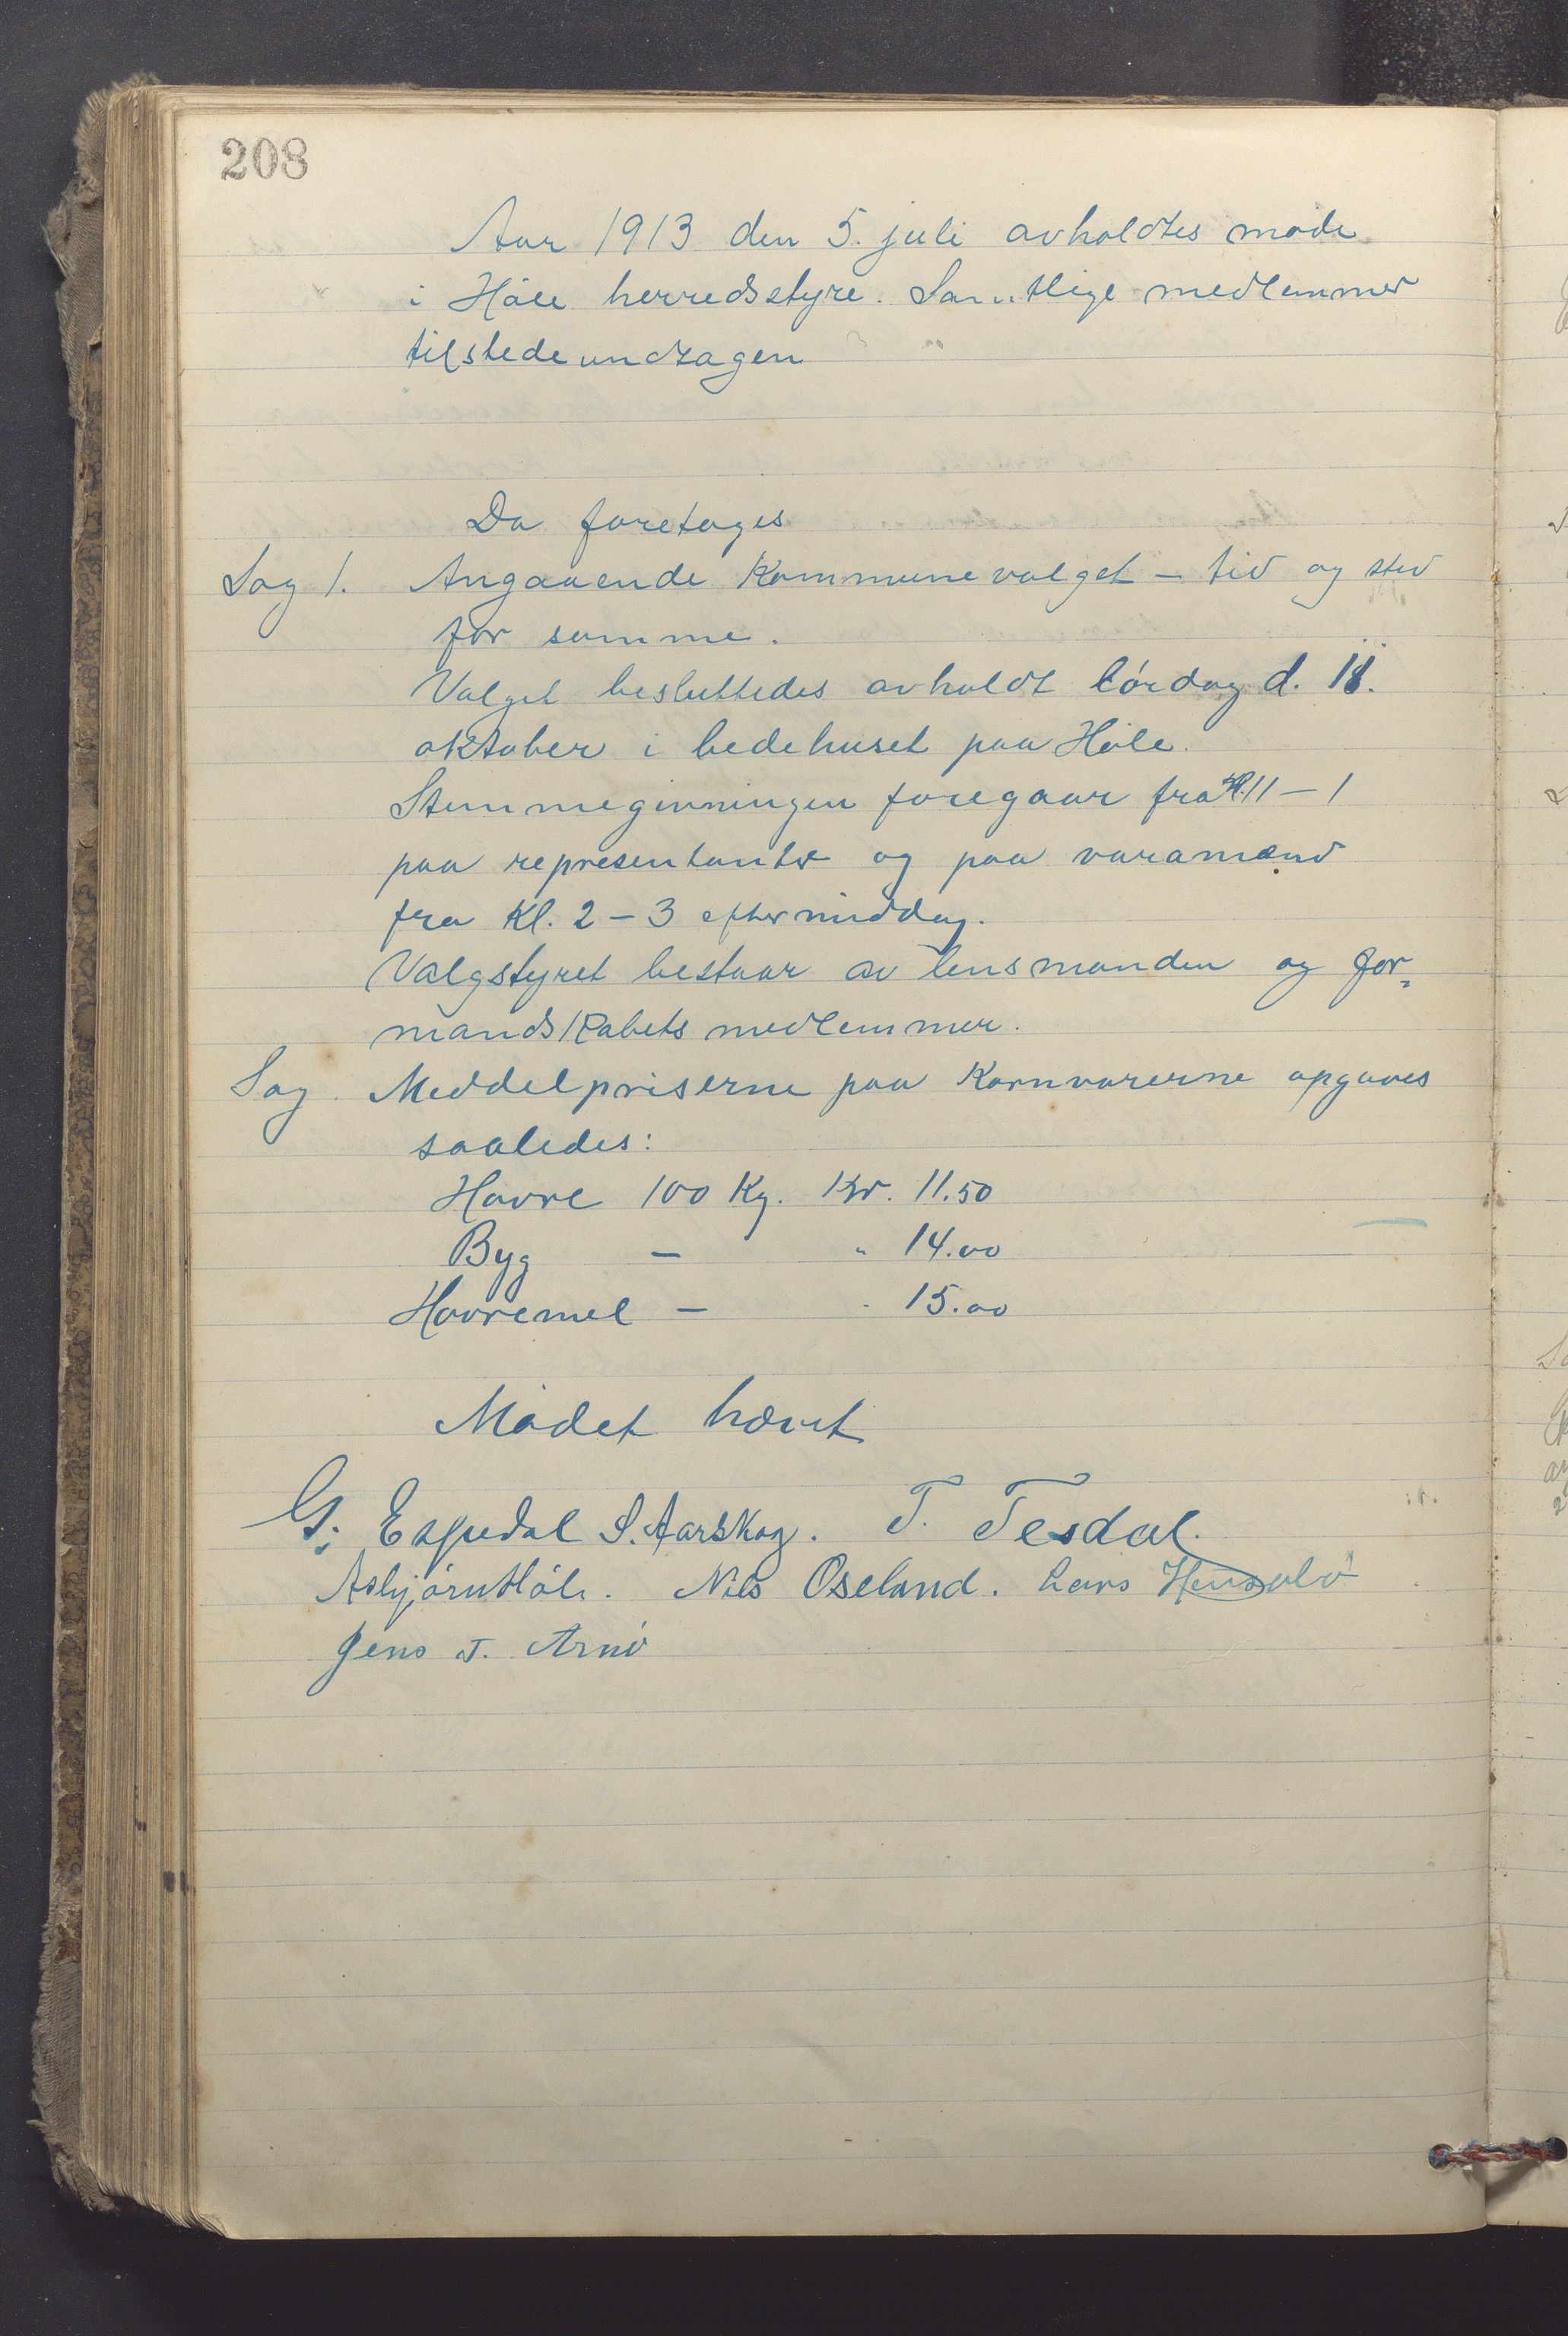 208
Aar 1913 den 5. juli avholdtes møde
i Høle herredsstyre. Samtlige medlemmer
tilstede undtagen
Da foretoges
Sag 1. Angaaende Kommunevalget – tid og sted
for samme.
Valget besluttedes avholdt lørdag d. 11.
oktober i bedehuset paa Høle.
Stemmegivningen foregaar fra Kl. 11 – 1
paa representanter og paa varamænd
fra Kl. 2 – 3 eftermiddag.
Valgstyret bestaar av lensmanden og for-
mandskabets medlemmer.
Sag. Meddelpriserne paa Kornvarerne opgaves
saaledes:
Havre 100 Kg. Kr. 11.50
Byg – " 14.00
Havremel – " 15.00
Mødet hævet
G. Espedal S. Aarskog. T. Tesdal.
Asbjørn Høle. Nils Oseland. Lars
Jens T. Arnø